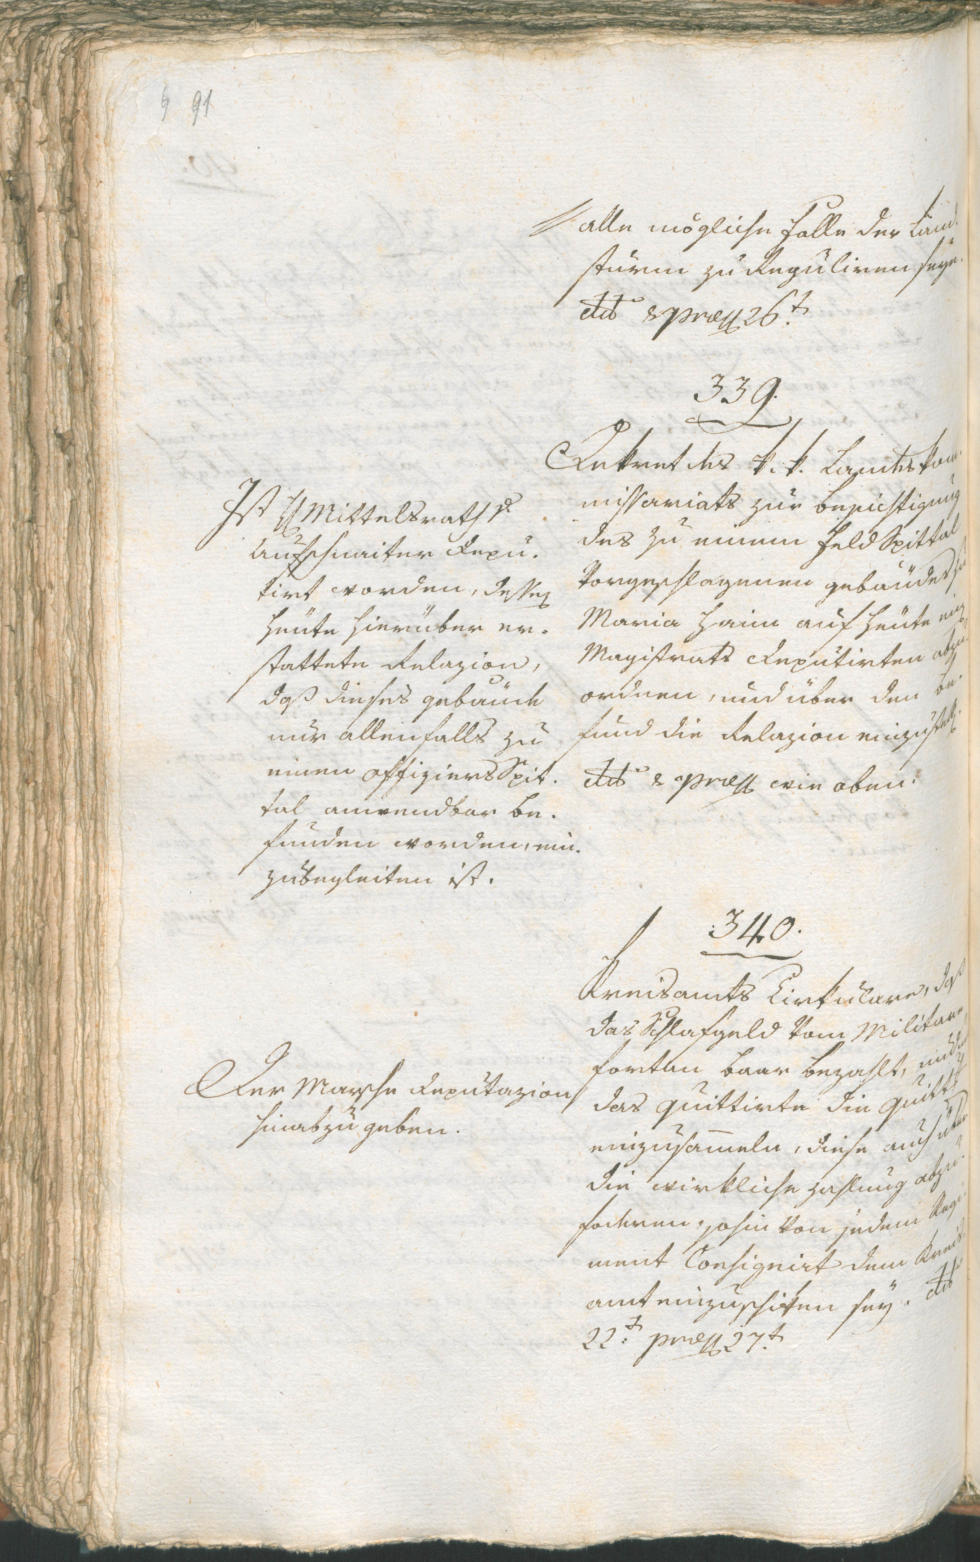 91
alle mögliche Fälle der Land¬
sturm zu Reguliren seye.
ddto & præss 26.t
339.
Dekret des k. k. Landeskom¬
missariats zur besichtigung
des zu einem Feld Spittal
vorgeschlagenen gebäudes zu
Maria Heim auf heute ein
Magistrats Deputirten abzu
ordnen, und über den be¬
fund die Relazion einzustell
ddto & præss wie oben.
Ist H Mittelsrath v
Aufschnaiter Depu¬
tirt worden, dessen
heute hierüber er¬
stattete Relazion,
daß dieses gebäude
nur allenfalls zu
einen offiziers Spit¬
tal anwendbar be¬
funden worden, ein¬
zubegleiten ist.
340.
Kreisamts Cirkulare, daß
das Schlafgeld vom Militar
fortan baar bezahlt, und
das quittirte die Quitt
einzusam̄eln, diese auch über
die wirkliche zahlung abzu
fodern, sohin von jedem Regi
ment Consignirt dem Kreis
amt einzuschiken sey. ddto
22.t præss 27.t
Der Marsche Deputazion
hinabzugeben.